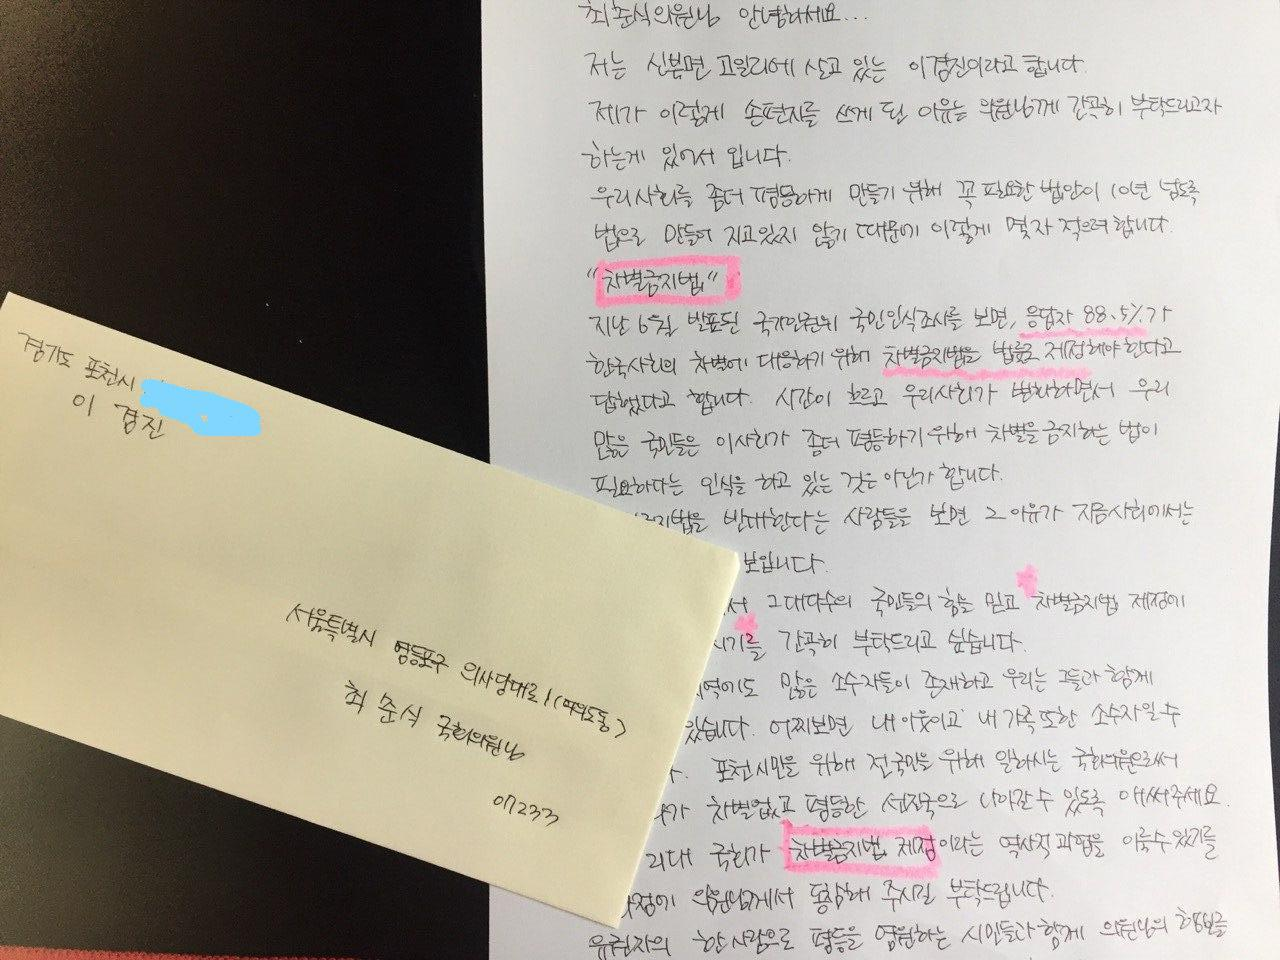 경기도 포천시
이 경진
서울특별시 영등포구 의사당대로 1 (여의도동)
최 춘식 국회의원님
07233
최춘식의원님 안녕하세요...
저는 신북면 고일리에 살고 있는 이경진이라고 합니다.
제가 이렇게 손편지를 쓰게 된 이유는 의원님께 간곡히 부탁드리고자
하는게 있어서 입니다.
우리사회를 좀더 평등하게 만들기 위해 꼭 필요한 법안이 10년 넘도록
법으로 만들어 지고있지 않기 때문에 이렇게 몇자 적으려합니다.
"차별금지법"
지난 6월 발표된 국가인권위 국민인식조사를 보면, 응답자 88.5%가
한국사회의 차별에 대응하기 위해 차별금지법을 법률로 제정해야한다고
답했다고 합니다. 시간이 흐르고 우리사회가 변화하면서 우리
많은 국민들은 이사회가 좀더 평등하기위해 차별을금지하는 법이
필요하다는 인식을 하고 있는 것은 아닌가 합니다.
금지법을 반대한다는 사람들을 보면 그 이유가 지금사회에서는
보입니다.
서 그대다수의 국민들의 힘을 믿고 차별금지법 제정에
시기를 간곡히 부탁드리고 싶습니다.
지역에도 많은 소수자들이 존재하고 우리는 그들과 함께
있습니다. 어찌보면 내 이웃이고 내 가족 또한 소수자일 수
포천시민을 위해 전국민을 위해 일하시는 국회의원으로써
가 차별없고 평등한 세진국으로 나아갈 수 있도록 애써주세요.
21대 국회가 차별금지법 제정이라는 역사적 과업을 이룰수있기를
과정에 의원님께서 동참해 주시길 부탁드립니다.
유권자의 한사람으로 평등을 염원하는 시민들과 함께 의원님의 행보를